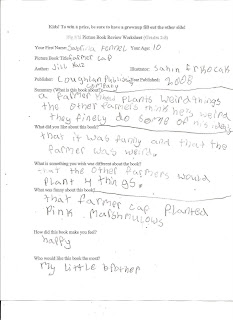 Kids! To win a prize, be sure to have a grownup fill out the other side!
Picture Book Review Worksheet (Grades 3-5)
Your First Name: Sabrina Fennel Your Age: 10
Picture Book Title: Farmer Cap
Author: Jill Illustrator: Sahin Erkocak
Publisher: Loughlan Publishing company Year Published: 2008
Summary (What is this book about?)
a farmer that plants weird things
the other farmers think he's weird
they finely do some of his
What did you like about this book?
that it was funny and that the
farmer was weird.
What is something you wish was different about the book?
that the other farmers would
plant 4 things.
What was funny about this book?
that farmer cap planted
Pink Marshmallows
How did this book make you feel?
happy
Who would like this book the most?
My little brother